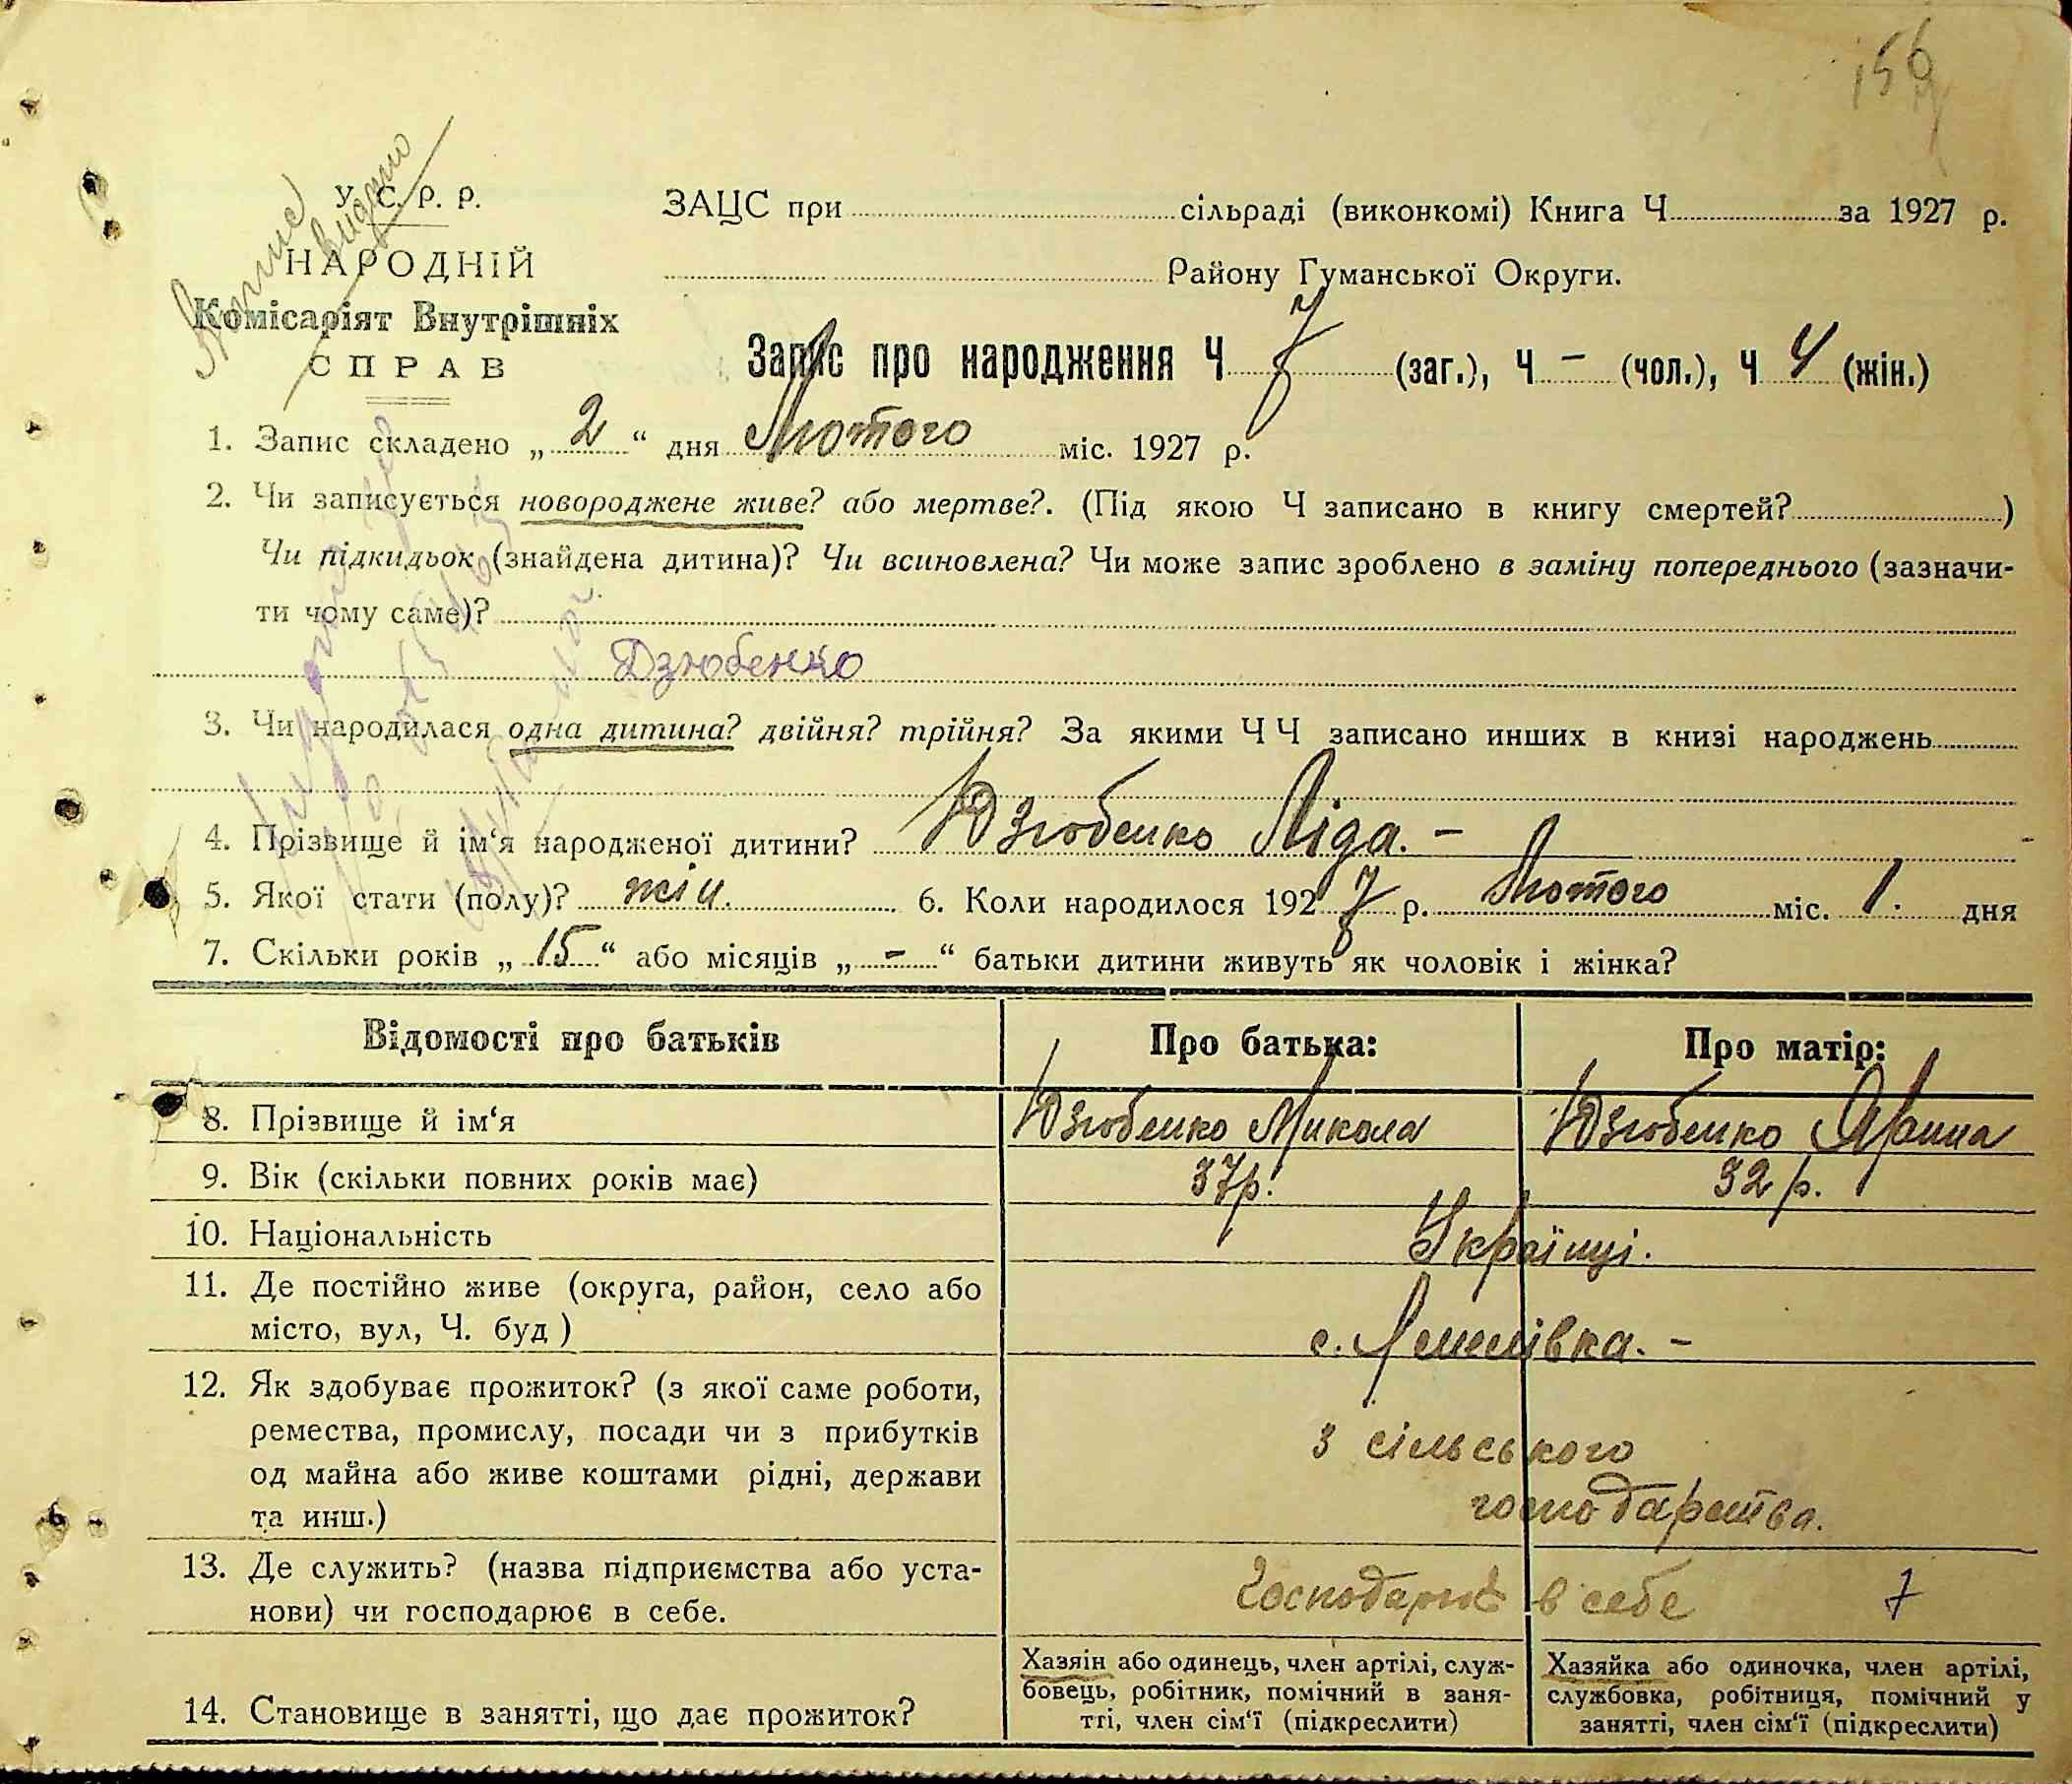 156
У. С. Р. Р.
НАРОДНІЙ
Комісаріят Внутрішніх
СПРАВ
Выпис видано
ЗАЦС при сільраді (виконкомі) Книга Ч за 1927 р.
Району Гуманської Округи.
Запис про народження Ч 7 (заг.), Ч – (чол.), Ч 4 (жін.)
1. Запис складено „ 2 “ дня Лютого міс. 1927 р.
2. Чи записується новороджене живе? або мертве?. (Під якою Ч записано в книгу смертей? )
Чи підкидьок (знайдена дитина)? Чи всиновлена? Чи може запис зроблено в заміну попереднього (зазначи-
ти чому саме)?
Дзюбенко
3. Чи народилася одна дитина? двійня? трійня? За якими ЧЧ записано инших в книзі народжень
4. Прізвище й ім‘я народженої дитини? Дзюбенко Ліда. –
5. Якої стати (полу)? жін. 6. Коли народилося 1927 р. Лютого міс. 1. дня
7. Скільки років „ 15 “ або місяців „ – “ батьки дитини живуть як чоловік і жінка?
Відомості про батьків Про батька: Про матір:
8. Прізвище й ім‘я Дзюбенко Микола Дзюбенко Ярина
9. Вік (скільки повних років має) 37р. 32 р.
10. Національність Українці.
11. Де постійно живе (округа, район, село або
місто, вул, Ч. буд ) с.
12. Як здобуває прожиток? (з якої саме роботи,
ремества, промислу, посади чи з прибутків
од майна або живе коштами рідні, держави
та инш.)
з сільського
господарства.
13. Де служить? (назва підприємства або уста-
нови) чи господарює в себе.
Господарює в себе
14. Становище в занятті, що дає прожиток?
Хазяїн або одинець, член артілі, служ-
бовець, робітник, помічний в заня-
тті, член сім‘ї (підкреслити)
Хазяйка або одиночка, член артілі,
службовка, робітниця, помічний у
занятті, член сім‘ї (підкреслити)